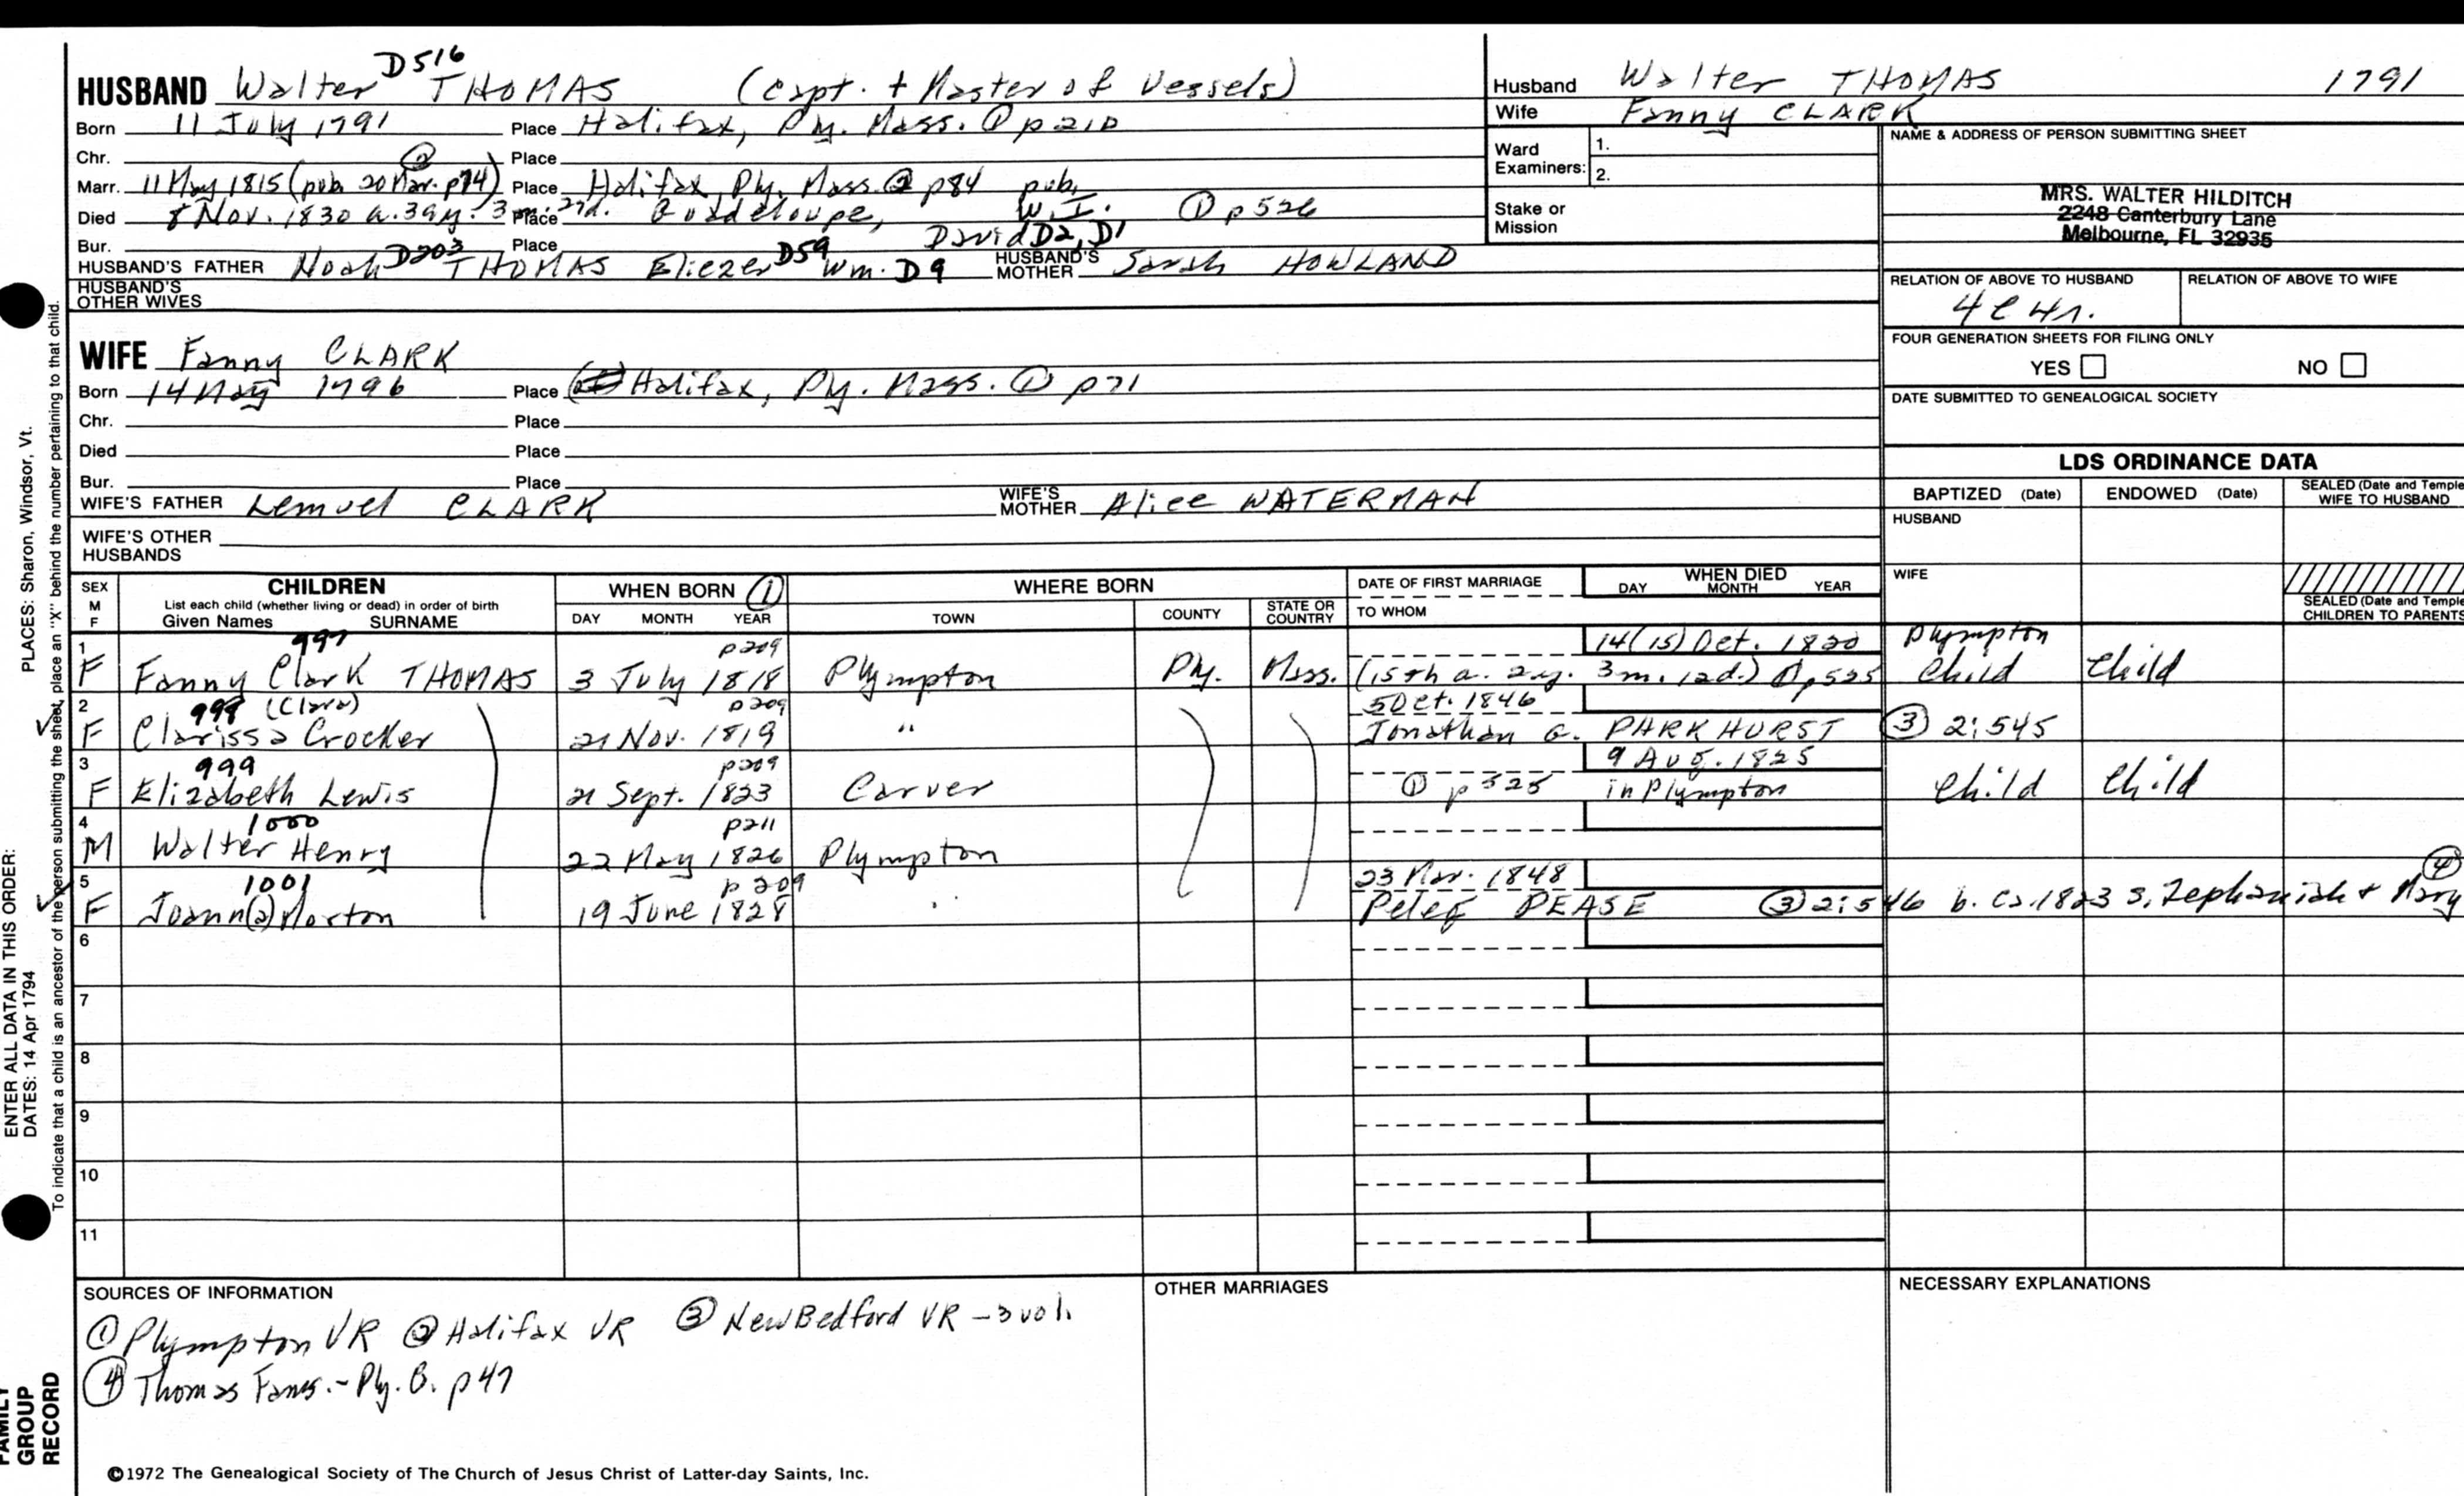 D516
HUSBAND Walter THOMAS (Capt. + Master of Vessels)
Born 11 July 1791 Place Halifax, Ply. Mass. ① p210
Chr. Place
②
Marr. 11 May 1815 (pub. 20 Mar. p74) Place Halifax, Ply. Mass. ② p84 pub.
Died 8 Nov. 1830 a. 39y. 3m. 27d. Place Guadeloupe, W.I. ① p526
Bur. Place David D2, D1
HUSBAND'S FATHER Noah D203 THOMAS Eliezer D59 Wm. D9 HUSBAND'S MOTHER Sarah HOWLAND
HUSBAND'S OTHER WIVES
Husband Walter THOMAS 1791
Wife Fanny CLARK
Ward Examiners: 1.
2.
Stake or Mission
NAME & ADDRESS OF PERSON SUBMITTING SHEET
MRS. WALTER HILDITCH
2248 Canterbury Lane
Melbourne, FL 32935
RELATION OF ABOVE TO HUSBAND RELATION OF ABOVE TO WIFE
4C4r.
FOUR GENERATION SHEETS FOR FILING ONLY
YES NO
DATE SUBMITTED TO GENEALOGICAL SOCIETY
WIFE Fanny CLARK
Born 14 May 1796 Place Halifax, Ply. Mass. ① p71
Chr. Place
Died Place
Bur. Place
WIFE'S FATHER Lemuel CLARK WIFE'S MOTHER Alice WATERMAN
WIFE'S OTHER HUSBANDS
LDS ORDINANCE DATA
BAPTIZED (Date) ENDOWED (Date) SEALED (Date and Temple
WIFE TO HUSBAND
HUSBAND
WIFE
SEALED (Date and Temple
CHILDREN TO PARENTS
SEX M F
CHILDREN
List each child (whether living or dead) in order of birth
Given Names SURNAME
WHEN BORN ①
DAY MONTH YEAR
WHERE BORN
TOWN COUNTY STATE OR COUNTRY
DATE OF FIRST MARRIAGE
TO WHOM
WHEN DIED
DAY MONTH YEAR
1 997 p209 14(15) Oct. 1820 Plympton
F Fanny Clark THOMAS 3 July 1818 Plympton Ply. Mass. (15th a. 2y. 3m. 12d.) ① p525 Child Child
2 998 (Clara) p209 5 Oct. 1846
F Clarissa Crocker 21 Nov. 1819 " Jonathan G. PARKHURST ③ 2:545
3 999 p209 9 Aug. 1825
F Elizabeth Lewis 21 Sept. 1823 Carver ① p525 in Plympton Child Child
4 1000 p211
M Walter Henry 22 May 1826 Plympton
5 1001 p209 23 Mar. 1848 ④
F Joann(a) Norton 19 June 1828 " Peleg PEASE ③ 2:546 b. ca. 1823 s. Zephaniah + Mary
6
7
8
9
10
11
SOURCES OF INFORMATION
① Plympton VR ② Halifax VR ③ New Bedford VR - 3 vol.
④ Thomas Fams. - Ply. B. p47
OTHER MARRIAGES
NECESSARY EXPLANATIONS
©1972 The Genealogical Society of The Church of Jesus Christ of Latter-day Saints, Inc.
PLACES: Sharon, Windsor, Vt.
ENTER ALL DATA IN THIS ORDER:
DATES: 14 Apr 1794
To indicate that a child is an ancestor of the person submitting the sheet, place an "X" behind the number pertaining to that child.
FAMILY
GROUP
RECORD